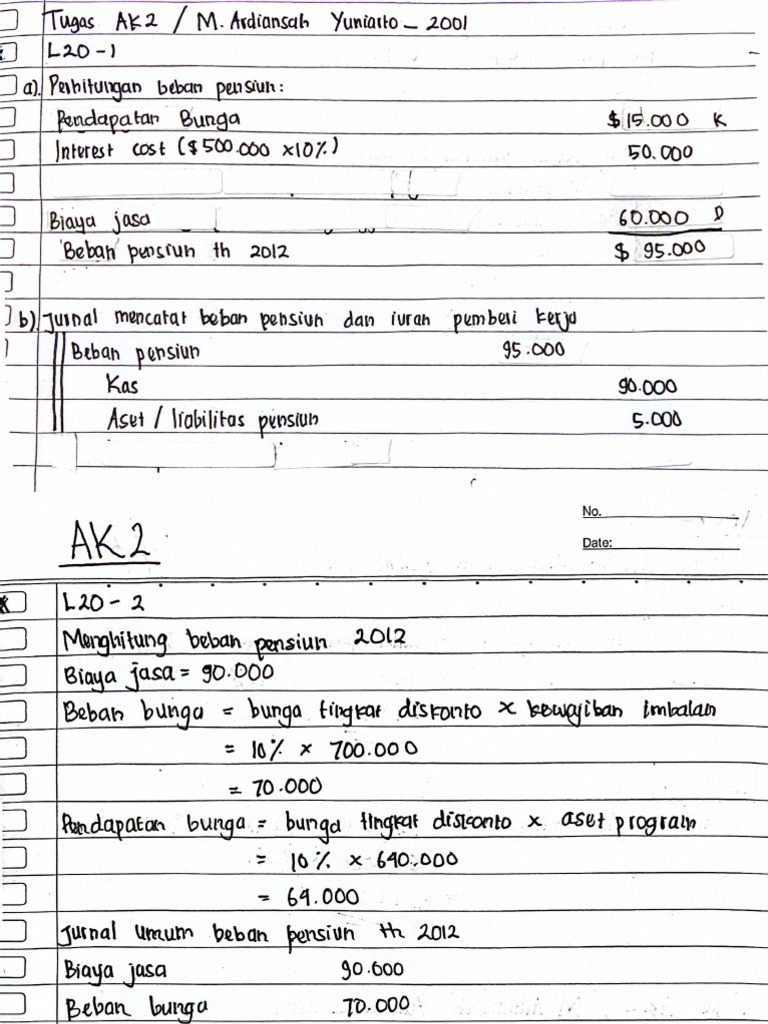 Tugas AK2 / M. Ardiansah Yuniarto - 2001
L20-1
a). Perhitungan beban pensiun:
Pendapatan Bunga $ 15.000 K
Interest cost ($500.000 x10%) 50.000
Biaya jasa 60.000 D
Beban pensiun th 2012 $ 95.000
b) Jurnal mencatat beban pensiun dan iuran pemberi kerja
Beban pensiun 95.000
Kas 90.000
Aset / liabilitas pensiun 5.000
AK2
No.
Date:
L20-2
Menghitung beban pensiun 2012
Biaya jasa = 90.000
Beban bunga = bunga tingkat diskonto x kewajiban imbalan
= 10% x 700.000
= 70.000
Pendapatan bunga = bunga tingkat diskonto x aset program
= 10% x 640.000
= 64.000
Jurnal umum beban pensiun th 2012
Biaya jasa 90.000
Beban bunga 70.000